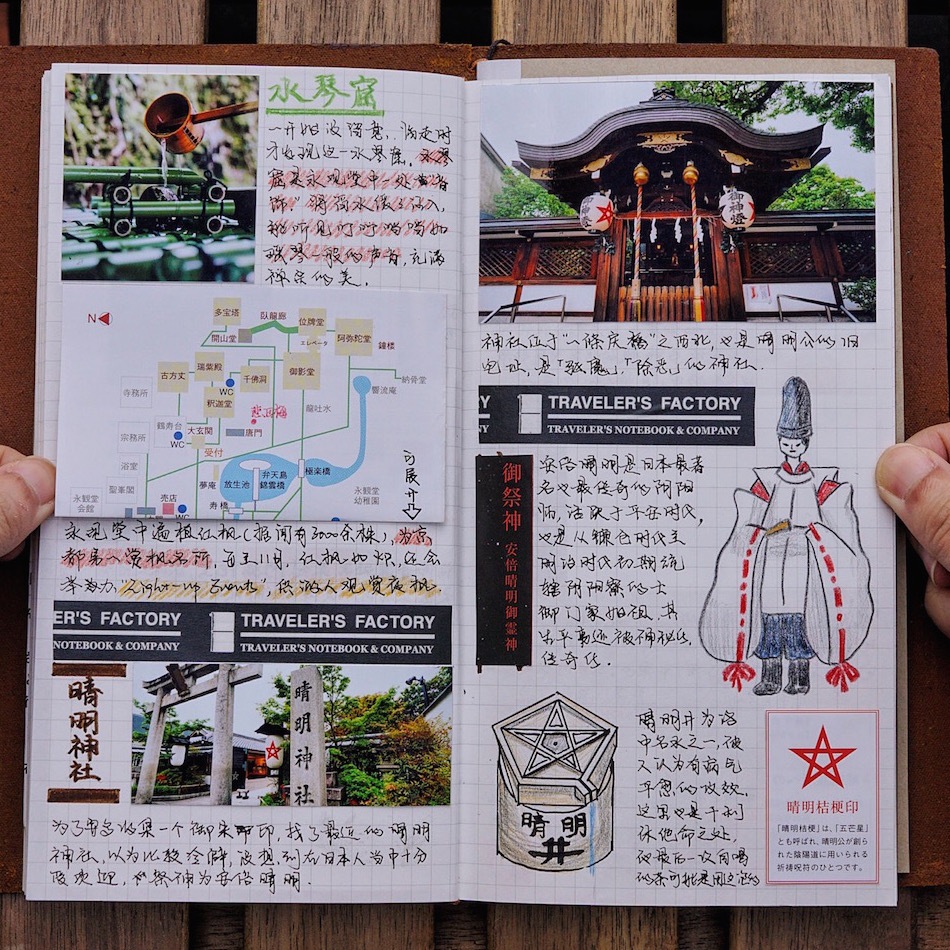 水琴窟
一开始没留意,临走时
才发现这一水琴窟,水琴
窟是永观堂中一处
禅宗的美.
N
多宝塔
臥龍廊
位牌堂
開山堂
エレベータ
阿弥陀堂
鐘楼
瑞紫殿
古方丈
千佛洞
御影堂
WC
納骨堂
寺務所
釈迦堂
響流庵
龍吐水
鶴寿台
大玄関
唐門
WC
宗務所
受付
浴堂
夢庵
弁天島
極楽橋
聖峯閣
放生池
錦雲橋
売店
寿橋
永観堂
幼稚園
永観堂
会館
可展开
永观堂中遍植红枫(据闻有3000余株),为京
都最 赏枫名所,每至11月,红枫如炽,还会
举办力"Light-up Event",供游人观赏夜枫.
ER'S FACTORY
NOTEBOOK & COMPANY
TRAVELER'S FACTORY
TRAVELER'S NOTEBOOK & COMPANY
晴明神社
晴明神社
为了再多收集一个御朱印,找了最近的晴明
神社,以为比较冷僻,没想到在日本人当中十分
受欢迎,祭神为安倍晴明.
御神燈
神社位于"一條戻橋"之西北,也是晴明公的旧
宅址,是「驱魔」,「除恶」的神社.
Y
NY
TRAVELER'S FACTORY
TRAVELER'S NOTEBOOK & COMPANY
御祭神 安倍晴明御霊神
安倍晴明是日本最著
名也最传奇的阴阳
师,活跃于平安时代,
也是从镰仓时代至
明治时代初期统
辖阴阳寮的土
御门家始祖.其
生平事迹被神秘化,
传奇化.
晴明井
晴明井为洛
中名水之一,被
人认为有病气
平愈的功效,
这里也是千利
休他命之处,
他最后一次自喝
的茶可能是用这的
晴明桔梗印
「晴明桔梗」は、「五芒星」
とも呼ばれ、晴明公が創ら
れた陰陽道に用いられる
祈祷呪符のひとつです。